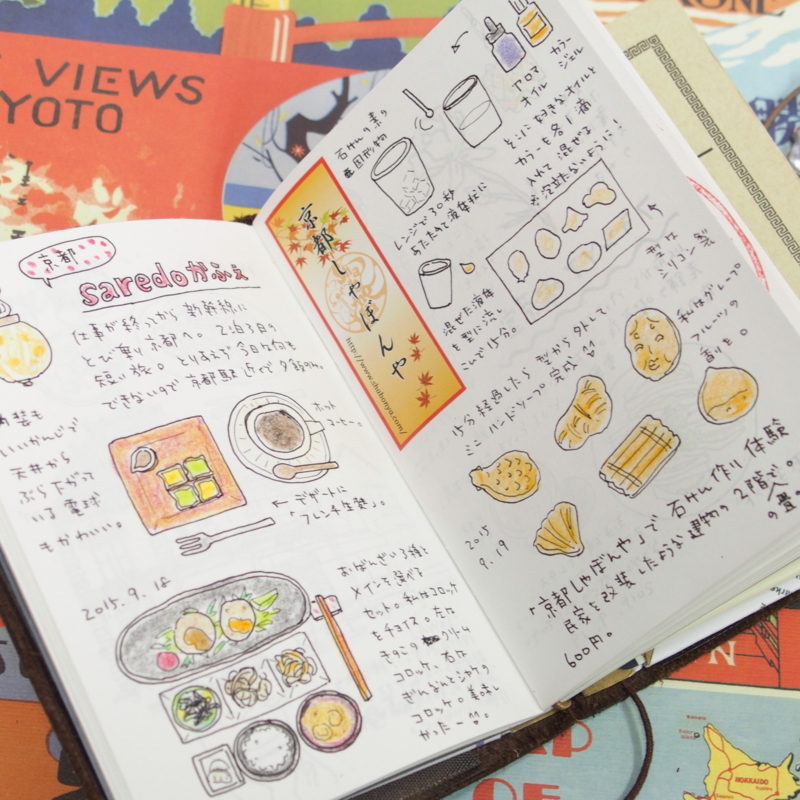 VIEWS
YOTO
京都
saredoかふぇ
仕事が終ってから新幹線に
とび乗り京都へ。2泊3日の
短い旅。とりあえず今日は何も
できないので京都駅近くで夕飯。
内装も
いいかんじで
天井から
ぶら下がって
いる電球
もかわいい。
ホット
コーヒー。
←デザートに
「フレンチ生麩」。
2015.9.18
おばんざい3種と
メインを選べる
セット。私はコロッケ
をチョイス。左は
きのこのクリーム
コロッケ、右は
ぎんなんとシャケの
コロッケ。美味し
かったー♡。
京都しゃぼんや
http://www.shabonya.com/
石けんの素の
固形物
アロマ
オイル
カラー
ジェル
レンジで30秒
あたためて液体状に
そこに好きなオイルと
カラーを各1滴
入れて混ぜる
※泡立たないように
混ぜた液体
を型に流し
こんで15分。
型は
シリコン製
15分経過したら型から外して
ミニハンドソープ完成♡
私はグレープ
フルーツの
香り。
2015
9.19
「京都しゃぼんや」で石けん作り体験
民家を改装したような建物の2階で。
600円。
HOKKAIDO
OF